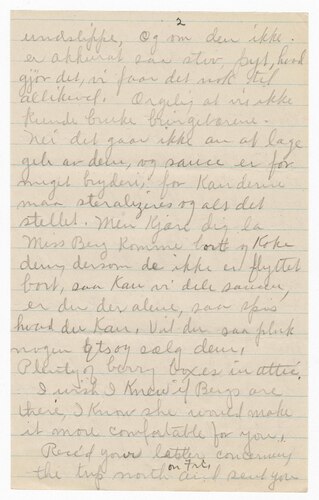 2
undslippe, Og om den ikke
er akkurat saa stiv, pyt, hvad
gjør det, vi faar det nok til
allikevel. Ærgelig at vi ikke
kunde bruke bringebærene.
Nei det gaar ikke an at lage
gele av dem, og sauce er for
meget bryderi, for Kanderne
maa steralizeres og alt det
stellet. Men Kjære dig la
Miss Berg Komme bort og Koke
dem, dersom de ikke er flyttet
bort, saa Kan vi dele saucen,
er du der alene, saa spis
hvad du Kan. Vil du saa pluk
nogen qts og sælg dem,
Plenty of berry boxes in attic.
I wish I Knew if Bergs are
there, I Know she would make
it more comfortable for you.
Rec'd your letter concerning
the trip north on Fri, and sent you